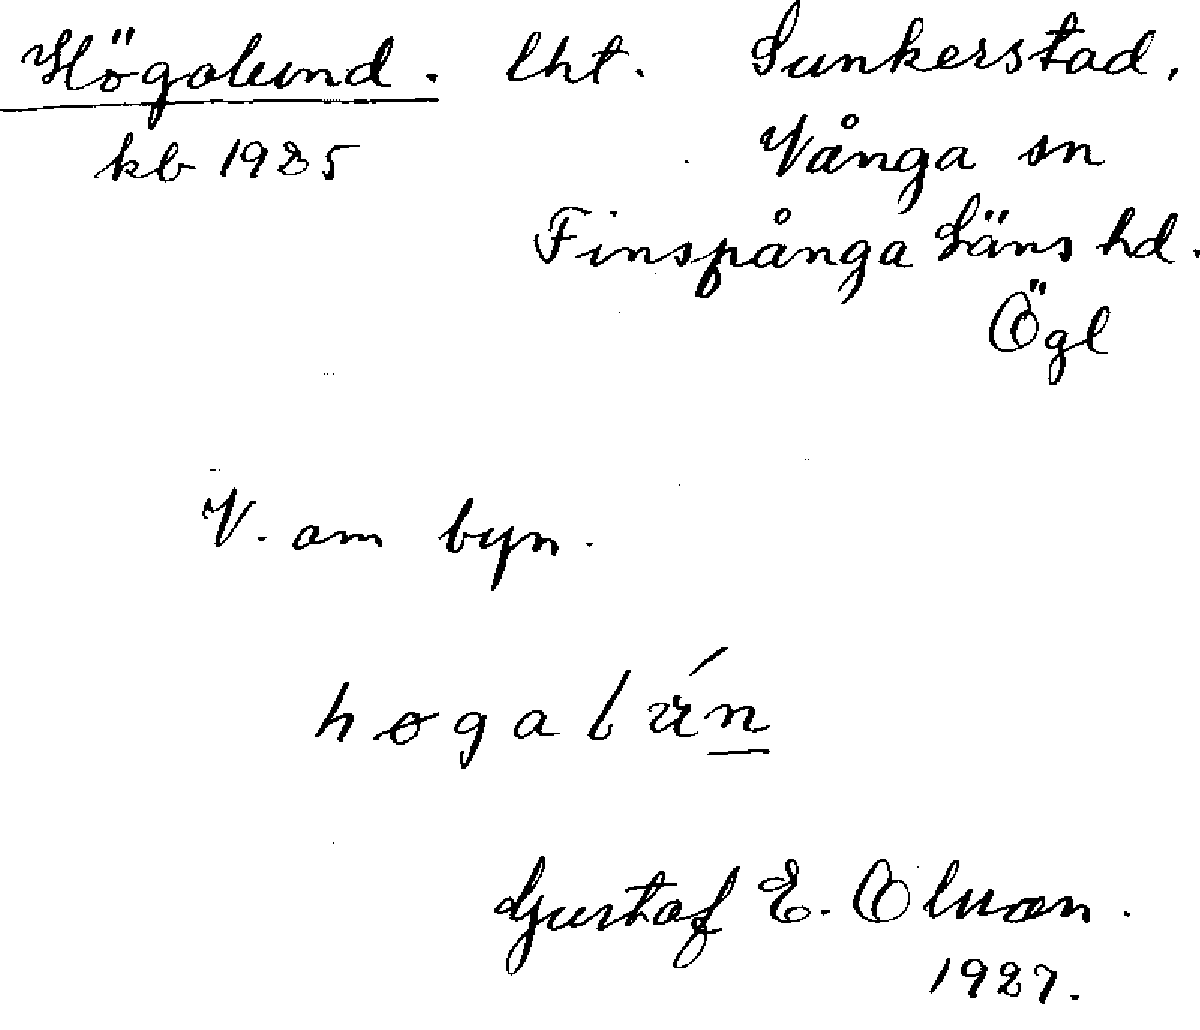 Högalund. lht. Sunkerstad,
kb 1925 Vånga sn
Finspånga Läns hd.
Ögl
V. om byn.
høgalún
Gustaf E. Olson.
1927.